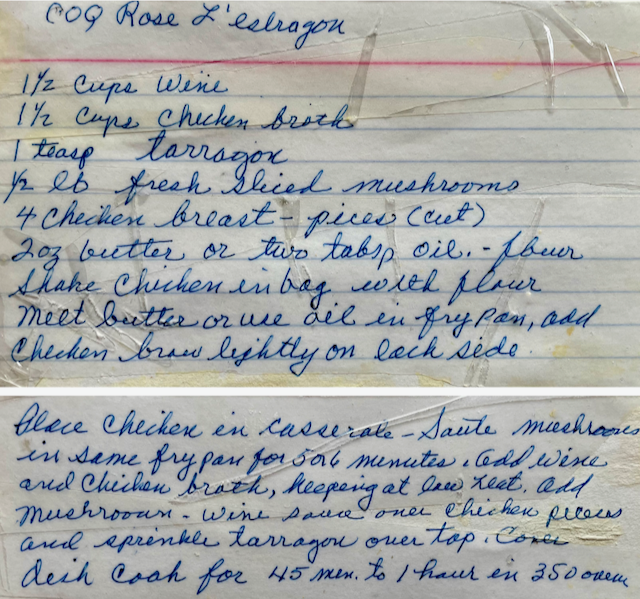 COQ Rose L'estragon
1½ cups wine
1½ cups chicken broth
1 teasp tarragon
½ lb fresh sliced mushrooms
4 chicken breast - pices (cut)
2oz butter or two tabsp oil. - flour
Shake chicken in bag with flour
Melt butter or use oil in fry pan, add
chicken brow lightly on each side.
Place chicken in casserole - Saute mushrooms
in same fry pan for 5 or 6 minutes. add wine
and chicken broth, keeping at low heat. add
mushroom - wine sauce over chicken pieces
and sprinkle tarragon over top. Cover
dish cook for 45 min. to 1 hour in 350 oven